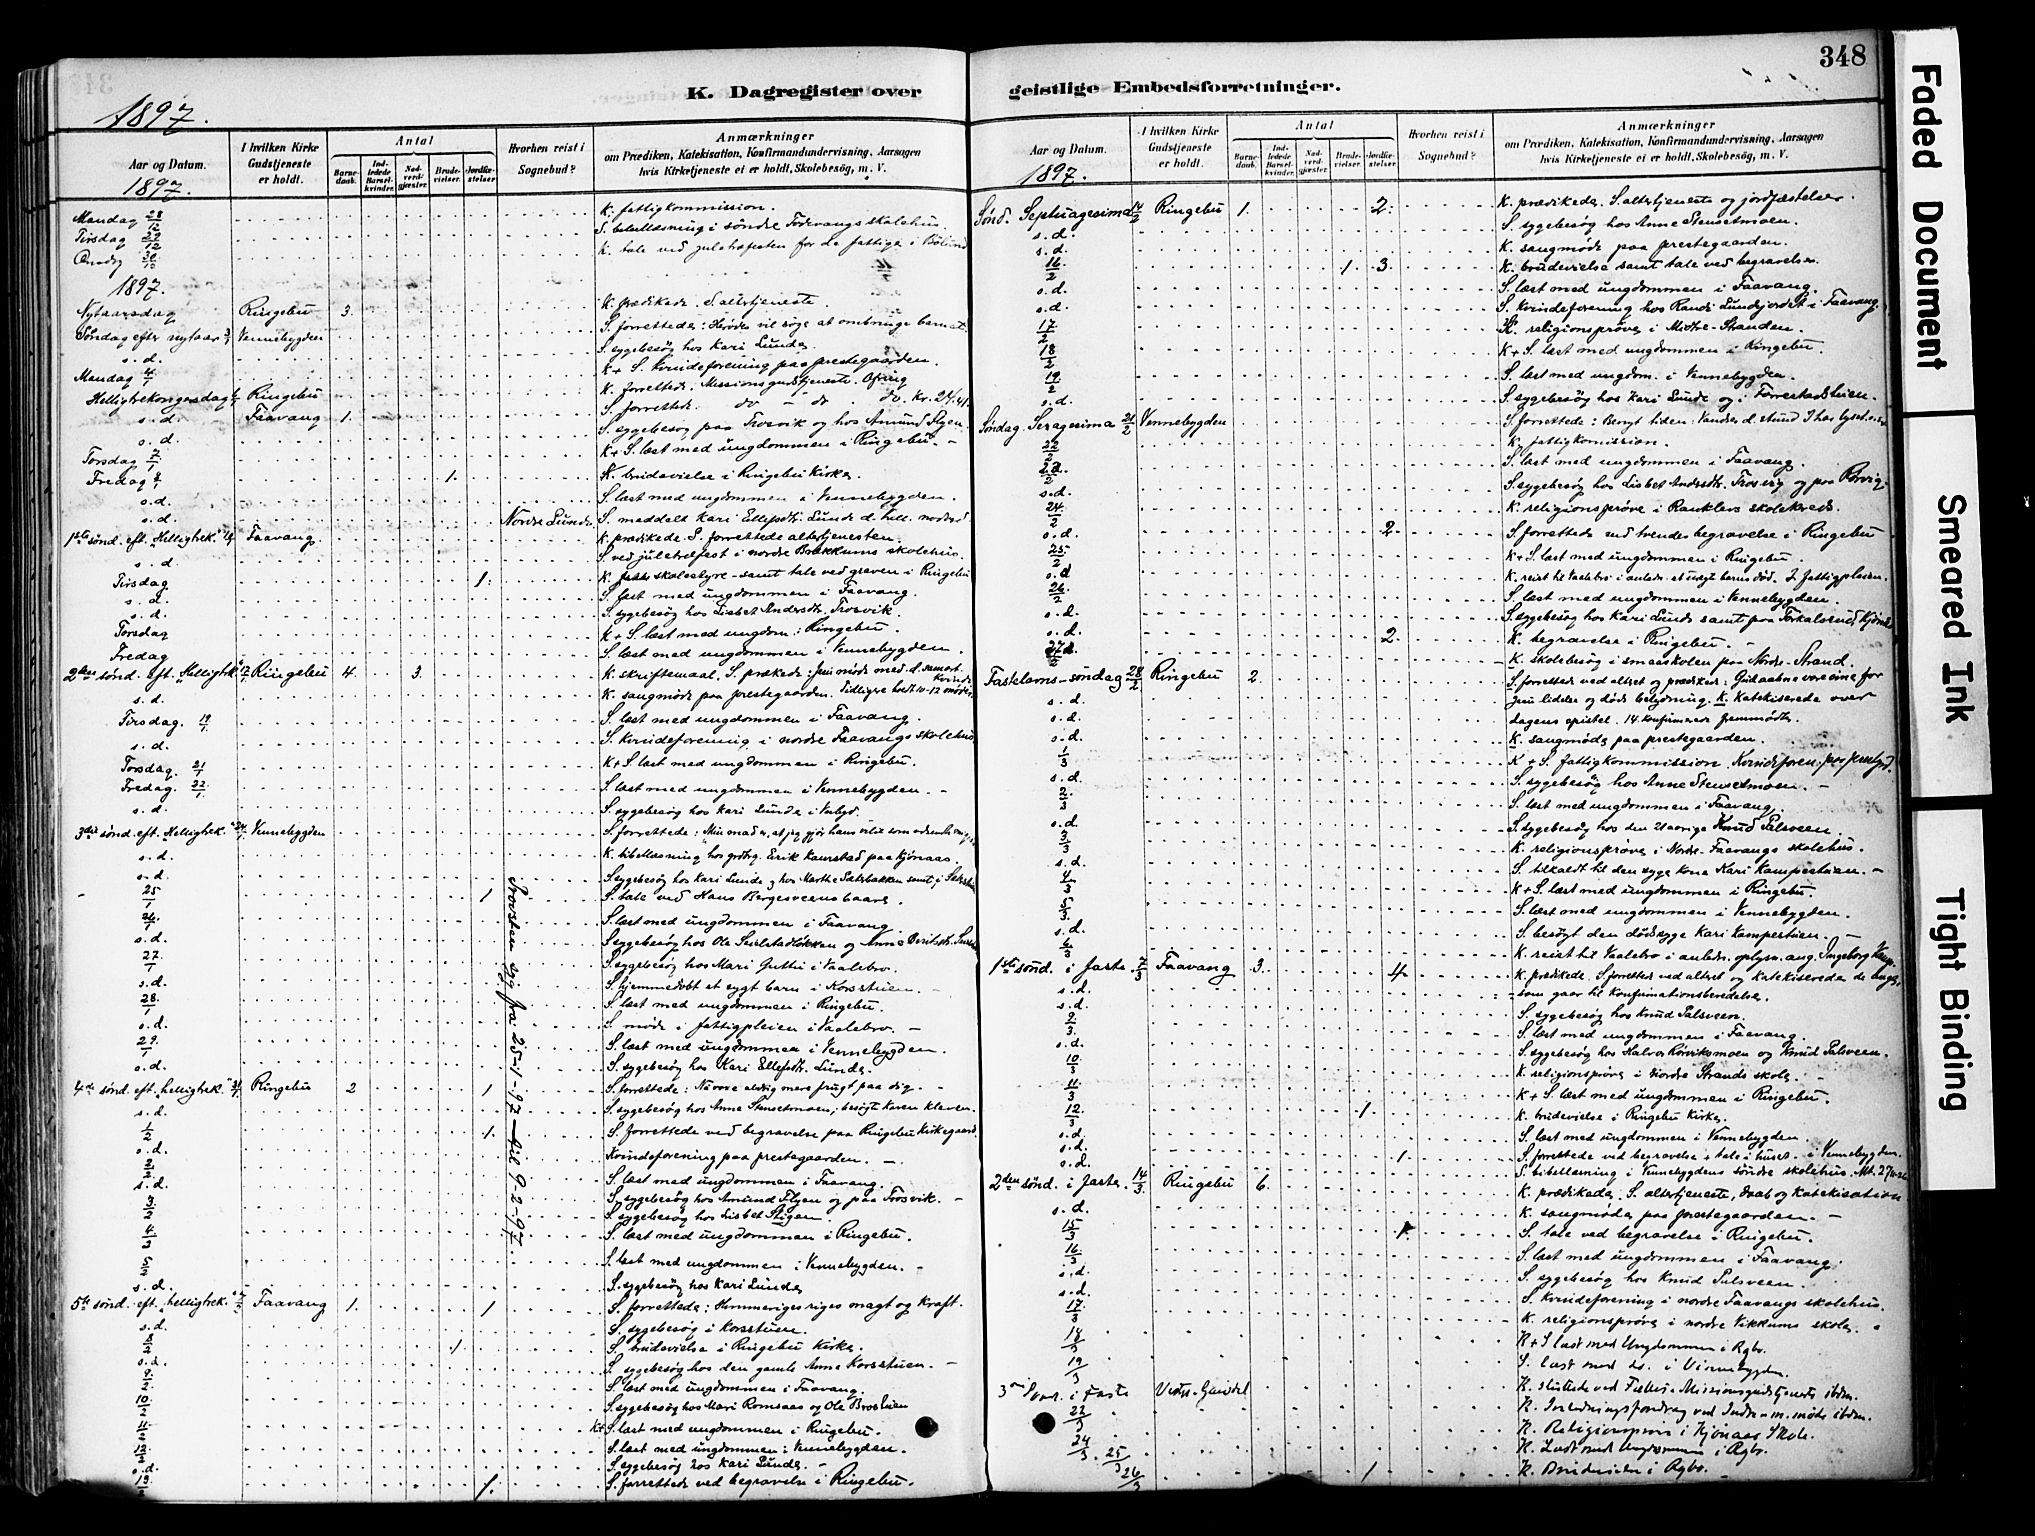 348
K. Dagregister over
geistlige Embedsforretninger.
1897.
Aar og Datum.
1897.
I hvilken Kirke Gudstjeneste er holdt.
Antal
Barnedaab.
Indledede Barselkvinder.
Nadverdgjæster.
Brudevielser.
Jordfæstelser
Hvorhen reist i Sognebud?
Anmærkninger
om Prædiken, Katekisation, Konfirmandundervisning, Aarsagen
hvis Kirketjeneste ei er holdt, Skolebesøg, m. V.
Mandag 28/12 K. fattigkommission.
Tirsdag 29/12 S. bibellæsning i søndre Faavangs skolehus
Onsdag 30/12 K. tale ved julehøfesten for de fattige i
1897.
Nytaarsdag Ringebu 3. K. prædikede. S. altertjeneste
Søndag efter nytaar 3/1 Vennebygden S. forrettede: Herodes vil søge at ombringe barnet.
s.d. S. sygebesøg hos Kari Lunde
Mandag 4/1 K + S. Kvindeforening paa prestegaarden.
Helligtrekongersdag 6/1 Ringebu K. forrettede. Missionsgudstjeneste. Ofring
s.d. Faavang 1. S. forrettede do - do do. kr. 24.41.
s.d. S. sygebesøg paa Trosvik og hos Amund Flyen.
Torsdag 7/1 K+S. læst med ungdommen i Ringebu. -
Fredag 8/1 1. K. brudevielse i Ringebu Kirke
s.d. S. læst med ungdommen i Vennebygden.
s.d. Nordre Lunde S. meddelt Kari Ellefsdtr. Lunde d. hell. nadverd.
1ste sønd. eft. "Helligtrek." Faavang K. prædikede. S. forrettede altertjenesten.
s.d. S. ved juletræfest i nordre Brekkums skolehus.
Tirsdag 1. K. skolestyre - samt tale ved graven i Ringebu
s.d. S. læst med ungdommen i Faavang.
s.d. S. sygebesøg hos Lisbet Andersdtr. Trosvik.
Torsdag K + S. læst med ungdom. i Ringebu.
Fredag S. læst med ungdommen i Vennebygden.
2den sønd. eft. "Helligtrek." 17/1 Ringebu 4. 3. K. skriftemaal, S. prækede: Jesu møde med d. samarit. kvinde
s.d. K. sangmøde paa prestegaarden. Tidligere holdt 10-12 møder
Tirsdag. 19/1 S. læst med ungdommen i Faavang.
s.d. S. Kvindeforening i nordre Faavangs skolehus
Torsdag. 21/1 K+S. læst med ungdommen i Ringebu.
Fredag. 22/1 S. læst med ungdommen i Vennebygden. -
s.d. S. sygebesøg hos Kari Lunde i
3die sønd. eft. "Helligtrek." 24/1 Vennebygden S. forrettede: "Min mad er, at jeg gjør hans vilje som
s.d. K. bibellæsning hos grdbr. Erik Kaurstad paa Kjønaas.
s.d. S. sygebesøg hos Kari Lunde og hos Marthe Sæterbakken samt i
25/1 1 S. tale ved Hans Bergesveens baare.
26/1 S. læst med ungdommen i Faavang
s.d. S. sygebesøg hos Ole og Anne
27/1 S. sygebesøg hos Mari Guttu i Vaalebro.
s.d. S. hjemmedøbt et sygt barn i Korsstuen. -
28/1 S. læst med ungdommen i Ringebu.
s.d. S. møde i fattigpleien i Vaalebro. -
29/1 S. læst med ungdommen i Vennebygden.
s.d. S. sygebesøg hos Kari Ellefsdtr. Lunde.
4de sønd. eft. "helligtrek." 31/1 Ringebu 2 1 S. forrettede: Nu vore aldrig mere frugt paa dig. -
s.d. S. sygebesøg hos Anne Stensetmoen; besøgt Karen Kleven.
1/2 1. S. forrettede ved begravelse paa Ringebu Kirkegaard.
s.d. Kvindeforening paa prestegaarden. -
2/2 S. læst med ungdommen i Faavang.
s.d. S. sygebesøg hos Amund Flyen og paa Trosvik. -
3/2 S. sygebesøg hos Lisbet Stigen.
4/2 S. læst med ungdommen i Ringebu.
5/2 S. læst med ungdommen i Vennebygden. -
s.d. S. sygebesøg hos Kari Lunde
5te sønd. eft. "helligtrek." 7/2 Faavang 1. 1 S. forrettede: Himmeriges riges magt og kraft.
s.d. S. sygebesøg i Korsstuen.
8/2 1 S. brudevielse i Ringebu Kirke.
s.d. S. sygebesøg hos den gamle Anne Korsstuen. -
9/2 S. læst med ungdommen i Faavang.
10/2 S. sygebesøg hos Mari Romsaas og Ole Brostuen
11/2 K+S. læst med ungdommen i Ringebu.
12/2 S. læst med ungdommen i Vennebygden.
s.d. S. sygebesøg hos Kari Lunde. -
13/2 1. S. forrettede ved begravelse i Ringebu.
Provsten syg fra 25-1-97 - til 9-2-97.
Aar og Datum.
1897.
I hvilken Kirke Gudstjeneste er holdt.
Antal
Barnedaab.
Indledede Barselkvinder.
Nadverdgjæster.
Brudevielser.
Jordfæstelser
Hvorhen reist i Sognebud?
Anmærkninger
om Prædiken, Katekisation, Konfirmandundervisning, Aarsagen
hvis Kirketjeneste ei er holdt, Skolebesøg, m. V.
Sønd. Septuagesima 14/2 Ringebu 1. 2. K. prædikede. S. altertjeneste og jordfæstelser.
s.d. S. sygebesøg hos Anne Stensetmoen.
s.d. K. sangmøde paa prestegaarden.
16/2 1 3. K. brudevielse samt tale ved begravelse.
s.d. S. læst med ungdommen i Faavang.
s.d. S. kvindeforening hos Randi Lundejordet i Faavang
17/2 K. religionsprøve i Midtre-Stranden.
18/2 K+S. læst med ungdommen i Ringebu.
19/2 S. læst med ungdom. i Vennebygden.
s.d. S. sygebesøg hos Kari Lunde og i
Søndag Sexagesima 21/2 Vennebygden S. forrettede: Benyt tiden: Vandre d. stund I har lyset
22/2 K. fattigkommission.
22/2 S. læst med ungdommen i Faavang.
s.d. S. sygebesøg hos Lisbet Andersdtr. Trosvig og paa Rørvig.
24/2 K. religionsprøve i Ranklev skolekreds.
s.d. 2. S. forrettede ved tvendes begravelse i Ringebu
25/2 K+S. læst med ungdommen i Ringebu.
s.d. K. reist til Vaalebro i anledn. et sygt barns død. I fattigpleien.
26/2 S. læst med ungdommen i Vennebygden.
s.d. S. sygebesøg hos Kari Lunde samt paa
s.d. 2. K. begravelse i Ringebu. -
27/2 K. skolebesøg i smaaskolen paa Nordr. Strand.
Fastelavns-søndag 28/2 Ringebu 2. S. forrettede ved altret og prædikede: Gud aabne vore øine for
s.d. Jesu lidelse og døds betydning. K. Katekiserede over
s.d. dagens epistel. 14 Konfirmerede fremmødte.
s.d. K. sangmøde paa prestegaarden.
1/3 K + S. fattigkommission. Kvindeforen. paa prestgd.
s.d. S. sygebesøg hos Anne Stensetmoen. -
2/3 S. læst med ungdommen i Faavang.
s.d. S. sygebesøg hos den 21 aarige Knud Palsveen.
3/3 K. religionsprøve i Nordr. Faavangs skolehus.
s.d. S. tilkaldt til den syge kone Kari Kampestuen. -
4/3 K+S. læst med ungdommen i Ringebu.
5/3 S. læst med ungdommen i Vennebygden.
s.d. S. besøgt den dødssyge Kari Kampestuen. -
6/3 K. reist til Vaalebro i anledn. oplysn. ang. Ingeborg
1ste sønd. i faste. 7/3 Faavang 3. 4 K. prædikede. S. forrettede ved altret og katekiserede de unge,
s.d. som gaar til Konfirmationsberedelse.
s.d. S. sygebesøg hos Knud Palsveen.
9/3 S. læst med ungdommen i Faavang.
s.d. S. sygebesøg hos Halvor Rørviksmoen og Knud Palsveen.
10/3 K. religionsprøve i Nordre Strands skole. -
11/3 K + S. læst med ungdommen i Ringebu.
12/3 1. K. brudevielse i Ringebu Kirke.
s.d. S. læst med ungdommen i Vennebygden.
s.d. 1 S. forrettede ved begravelse, tale i huset. i Vennebygden.
s.d. S. bibellæsning i Vennebygdens søndre skolehus.
2den sønd. i faste. 14/3 Ringebu 6. K. prædikede. S. altertjeneste, daab og katekisation
s.d. K. sangmøde paa prestegaarden. -
15/3 1 S. tale ved begravelse i Ringebu.
16/3 S. læst med ungdommen i Faavang.
s.d. S. sygebesøg hos Knud Palsveen.
s.d. S. kvindeforening i nordre Faavangs skolehus.
17/3 K. religionsprøve i nordre Vekkums skole.
18/3 K+S læst med Ungdommen i Rgbo.
19/3 S. læst med do. i Vennebygden
3 i Faste K. sluttede ved Missionsgudstjeneste
22/3 K. ved Indre-m. møde
24/3 K. Religionsprøve i Kjønaas Skole.
25/3 K. Læst med Ungdommen i Rgbo.
26/3 1 K. Brudevielse i Rgbo.
Faded Document
Smeared Ink
Tight Binding